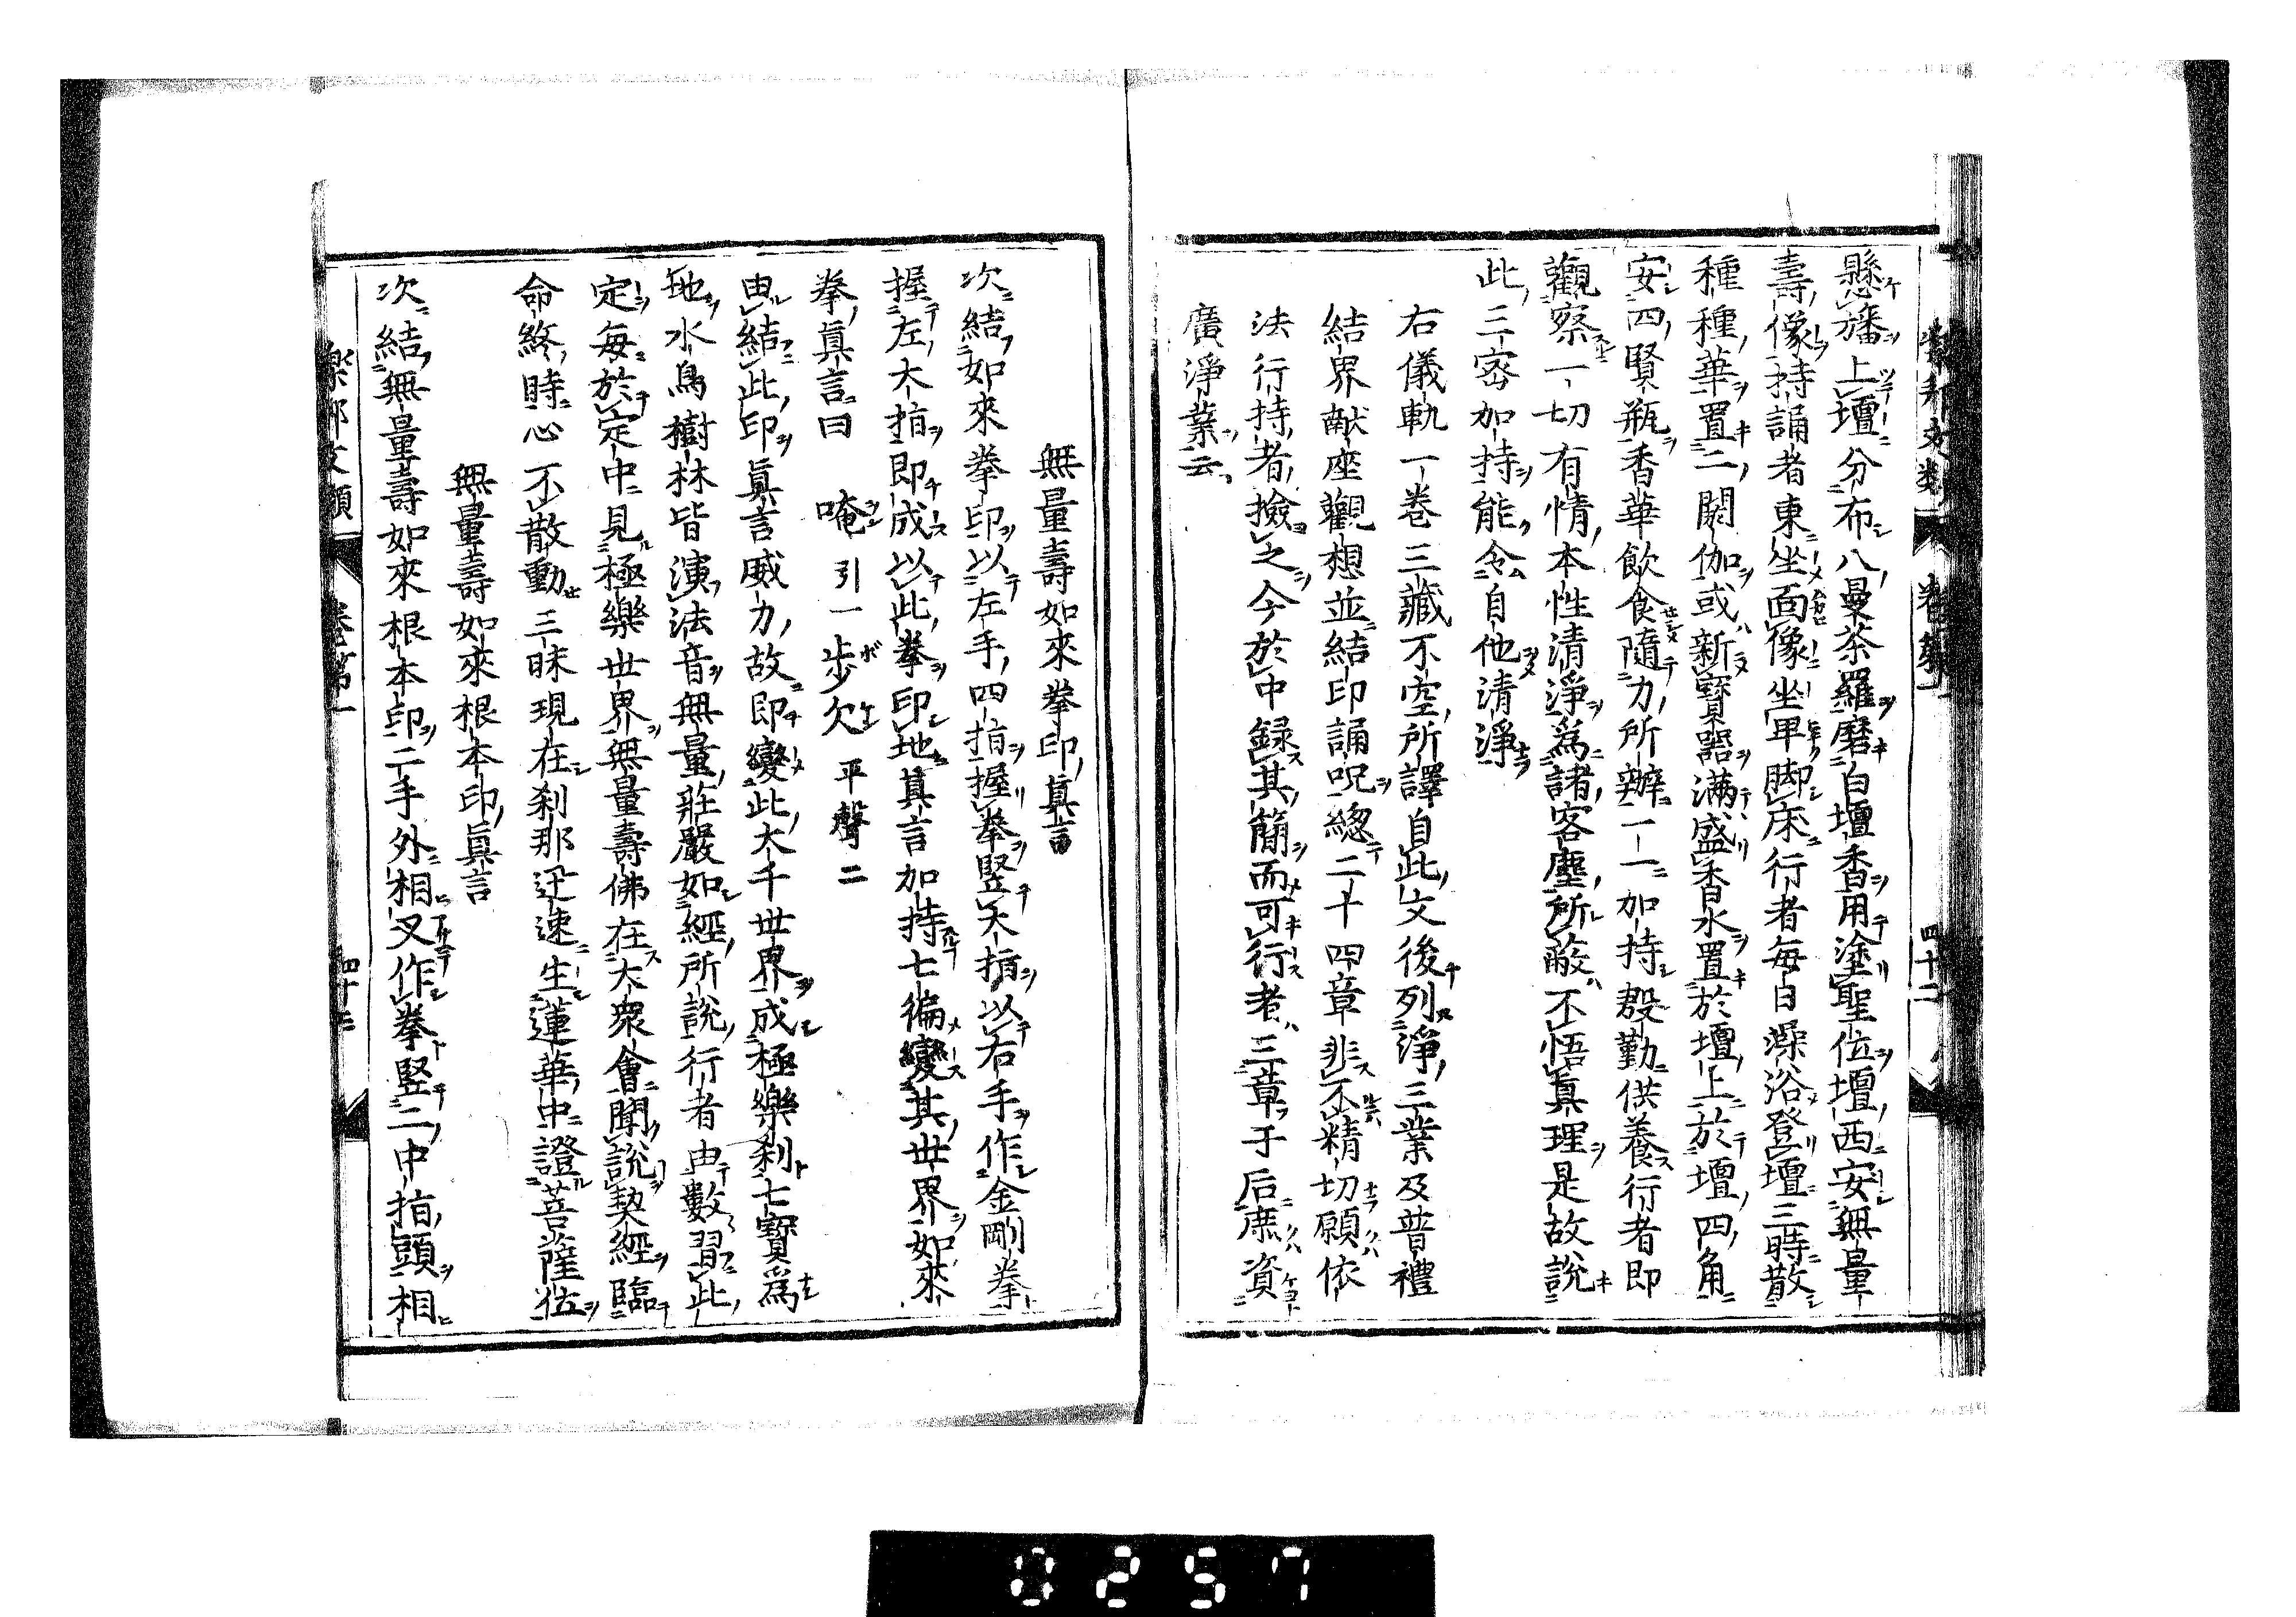 懸旛上壇分布八曼荼羅磨白壇香用塗聖位壇西安無量
壽像持誦者東坐面像坐卑脚床行者每日澡浴登壇三時散
種種華置二閼伽或新寶器滿盛香水置於壇上於壇四角
安四賢瓶香華飲食隨力所辦一一加持慇勤供養行者即
觀察一切有情本性清淨爲諸客塵所蔽不悟眞理是故說
此三密加持能令自他清淨
右儀軌一巻三藏不空所譯自此文後列淨三業及普禮
結界献座觀想並結印誦呪總二十四章非不精切願依
法行持者撿之今於中録其簡而可行者三章于后庶資
廣淨業云
無量壽如來拳印眞言
次結如來拳印以左手四指握拳竪大指以右手作金剛拳
握左大指即成以此拳印地真言加持七徧變其世界如來
拳眞言曰　唵引一歩欠平聲二
由結此印眞言威力故即變此大千世界成極樂刹七寶爲
地水鳥樹林皆演法音無量莊嚴如經所說行者由數習此
定每於定中見極樂世界無量壽佛在大衆會聞說契經臨
命終時心不散動三昧現在刹那迅速生蓮華中證菩薩位
無量壽如來根本印眞言
次結無量壽如來根本印二手外相叉作拳竪二中指頭相
樂邦文類　卷第一　四十二